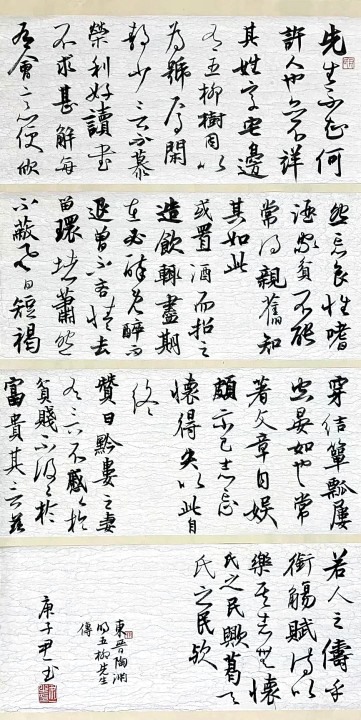 先生不知何
許人也亦不詳
其姓字宅邊
有五柳樹因以
為號焉閑
靜少言不慕
榮利好讀書
不求甚解每
有會意便欣
然忘食性嗜
酒家貧不能
常得親舊知
其如此
或置酒而招之
造飲輒盡期
在必醉既醉而
退曾不吝情去
留環堵蕭然
不蔽風日短褐
穿結簞瓢屢
空晏如也常
著文章自娛
頗示己志忘
懷得失以此自
終
贊曰黔婁之妻
有言不慼〻於
貧賤不汲〻於
富貴其言茲
若人之儔乎
銜觴賦詩以
樂其志無懷
氏之民歟葛天
氏之民歟
東晉陶淵
明五柳先生
傳
庚子尹書